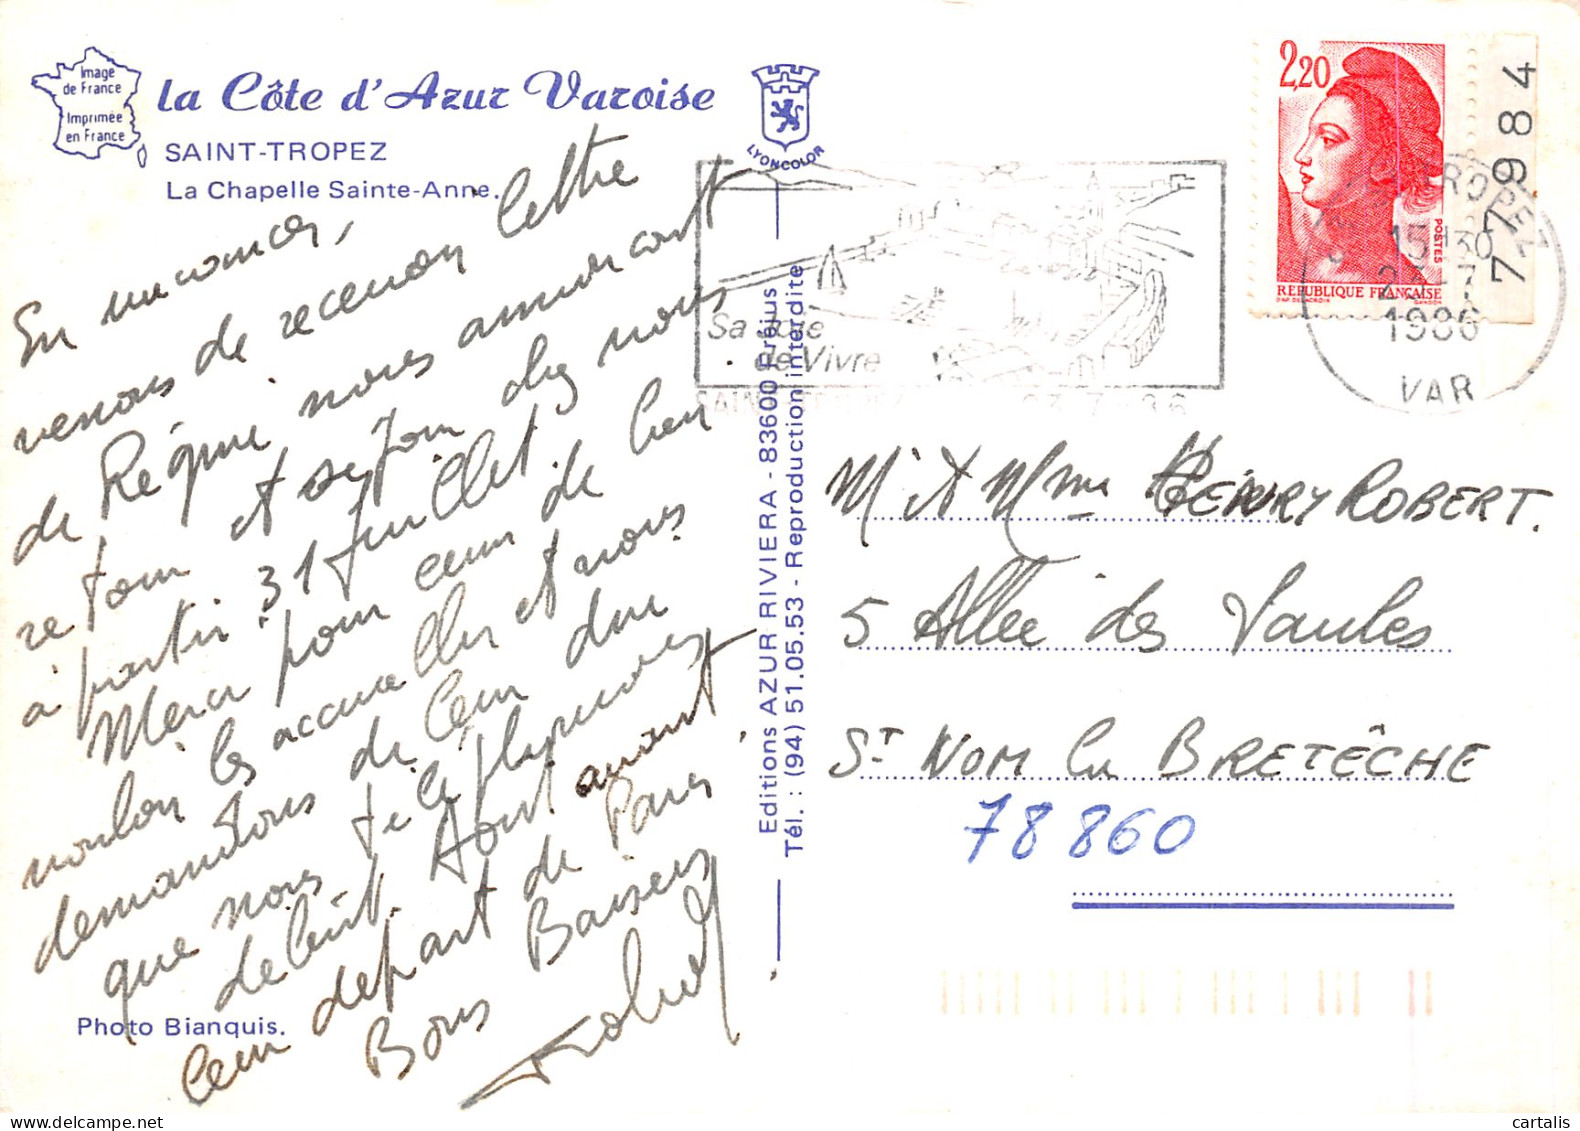 Image
de France
Imprimée
en France
la Côte d'Azur Varoise
SAINT-TROPEZ
La Chapelle Sainte-Anne.
LYONCOLOR
En vacances,
venons de recevoir lettre
de Régine nous annonçant
retour et séjour chez nous
à partir 31 Juillet.
Merci pour ceux de bien
vouloir les accueillir et nous
demandons de leur dire
que nous téléphonerons
début Aout avant
leur départ de Paris
Bons Baisers
Photo Bianquis.
Editions AZUR RIVIERA - 83600 Fréjus
Tél. : (94) 51.05.53 - Reproduction interdite
2,20
POSTES
REPUBLIQUE FRANÇAISE
77984
15H30
23-7
1986
VAR
Sa Joie
de Vivre
SAINT-TROPEZ 23.7.86
Mr et Mme HENRY ROBERT.
5 Allée des Saules
ST NOM la BRETÈCHE
78860
cartalis